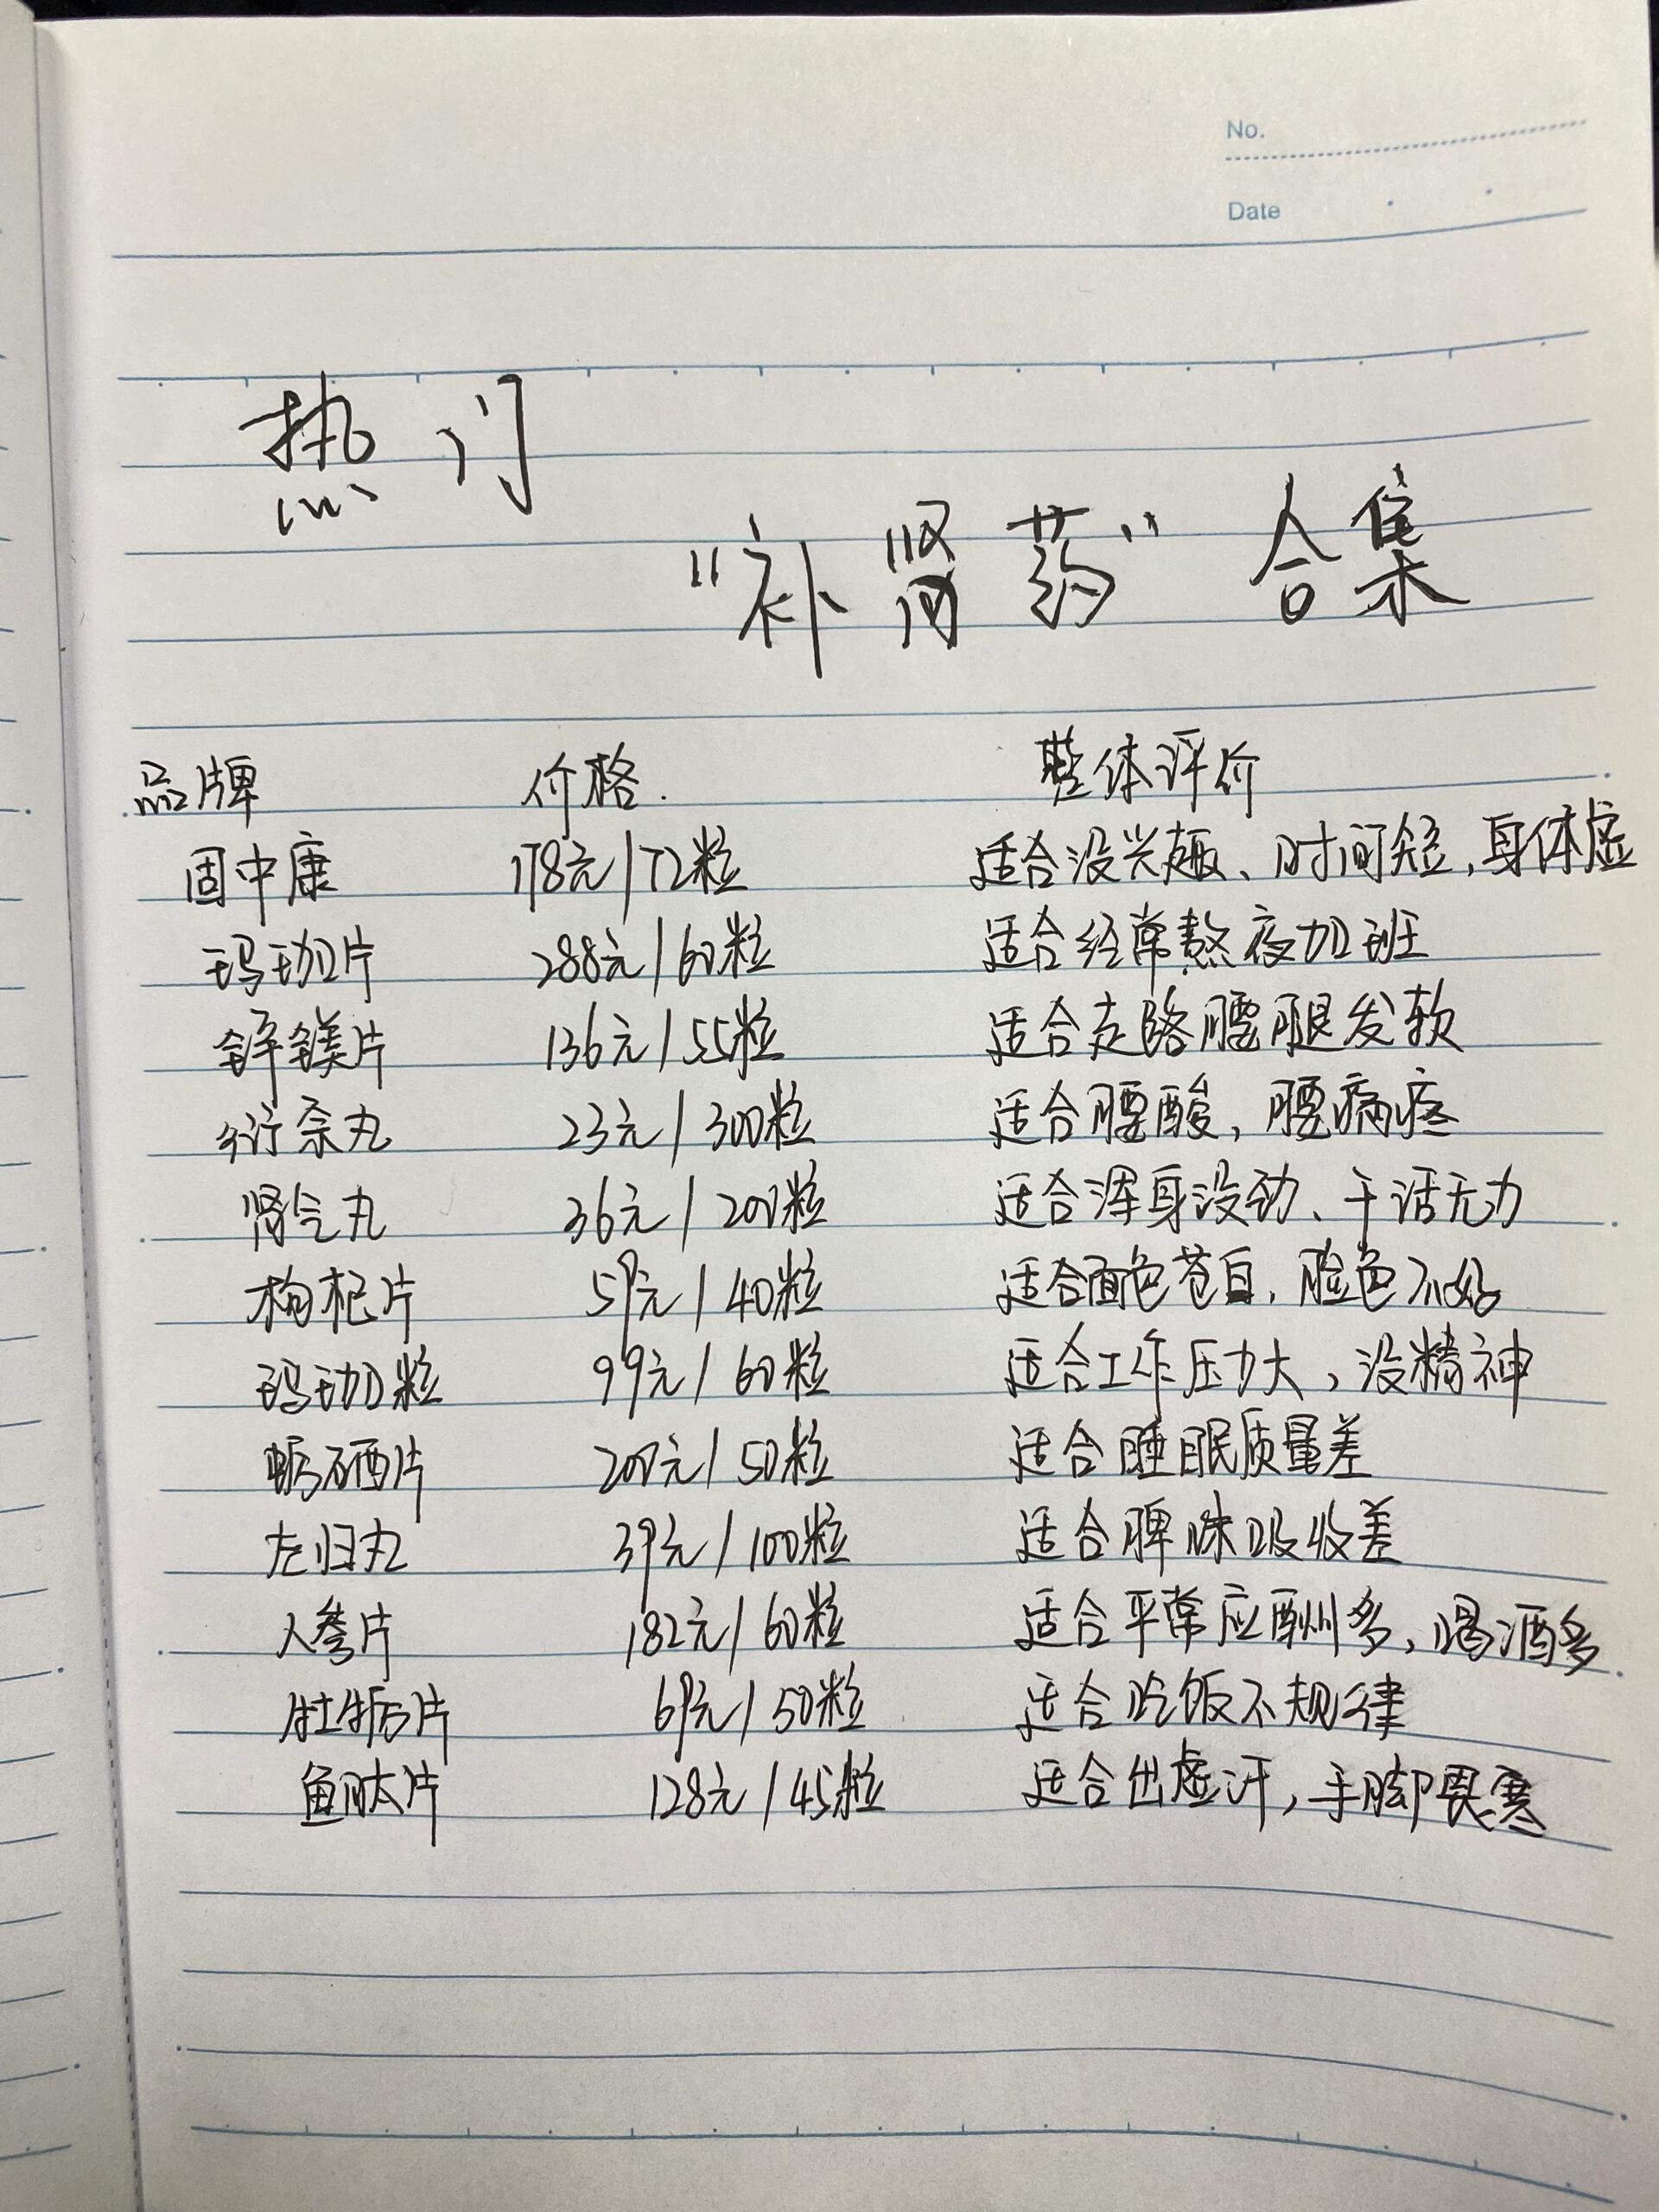 No.
Date
热门
"补肾药"合集
品牌 价格 整体评价
固中康 178元/72粒 适合没兴趣、时间短,身体虚
玛珈片 288元/60粒 适合经常熬夜加班
锌镁片 136元/55粒 适合走路腰腿发软
衍宗丸 23元/300粒 适合腰酸,腰病疼
肾气丸 36元/200粒 适合浑身没劲、干话无力
枸杞片 59元/40粒 适合面色苍白,脸色不好
玛珈粒 99元/60粒 适合工作压力大,没精神
蛎硒片 200元/50粒 适合睡眠质量差
左归丸 39元/100粒 适合脾味吸收差
人参片 182元/60粒 适合平常应酬多,喝酒多
牡蛎片 69元/50粒 适合吃饭不规律
鱼肽片 128元/45粒 适合出虚汗,手脚畏寒